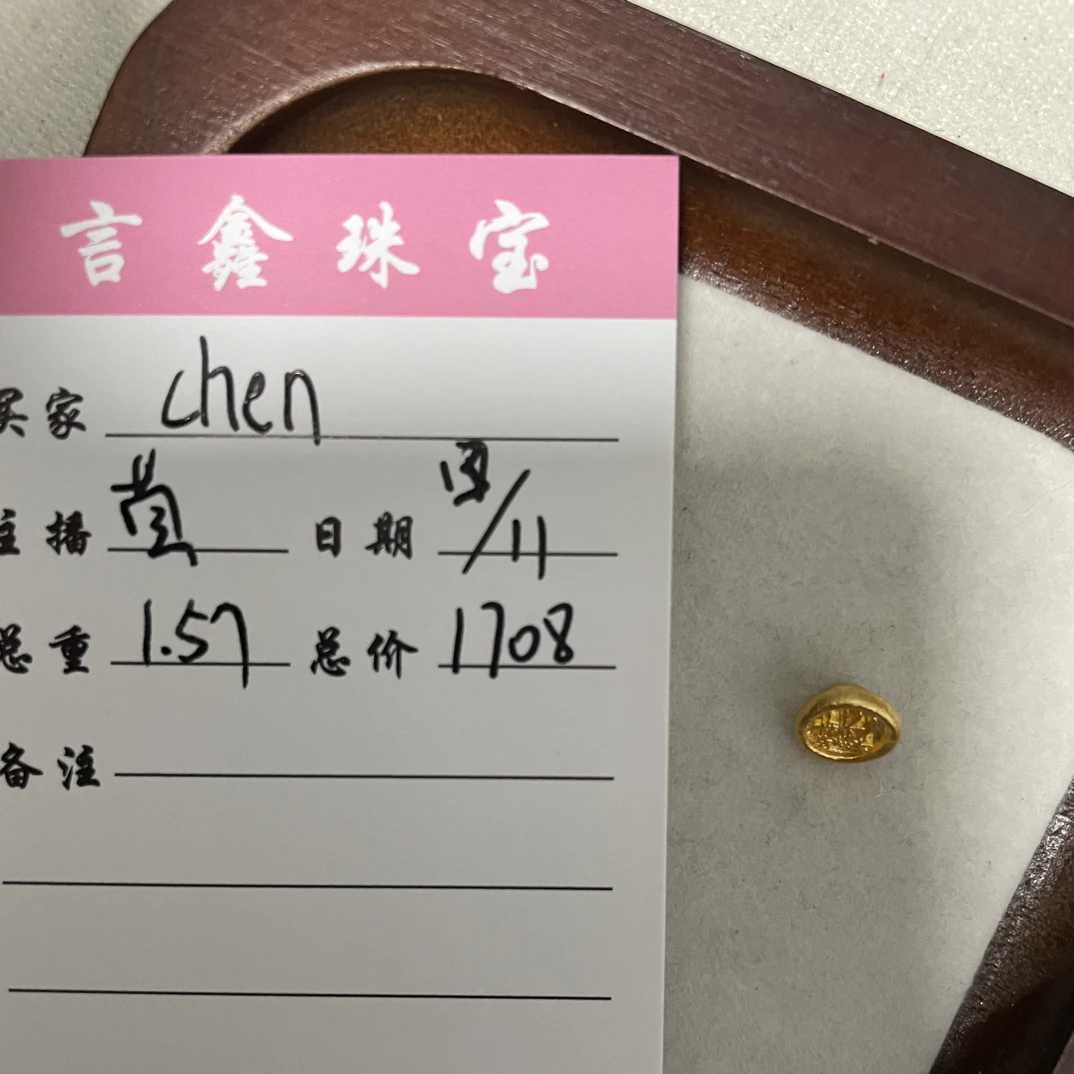 言鑫珠宝
买家 chen
主播 日期 /11
总重 1.57 总价 1708
备注